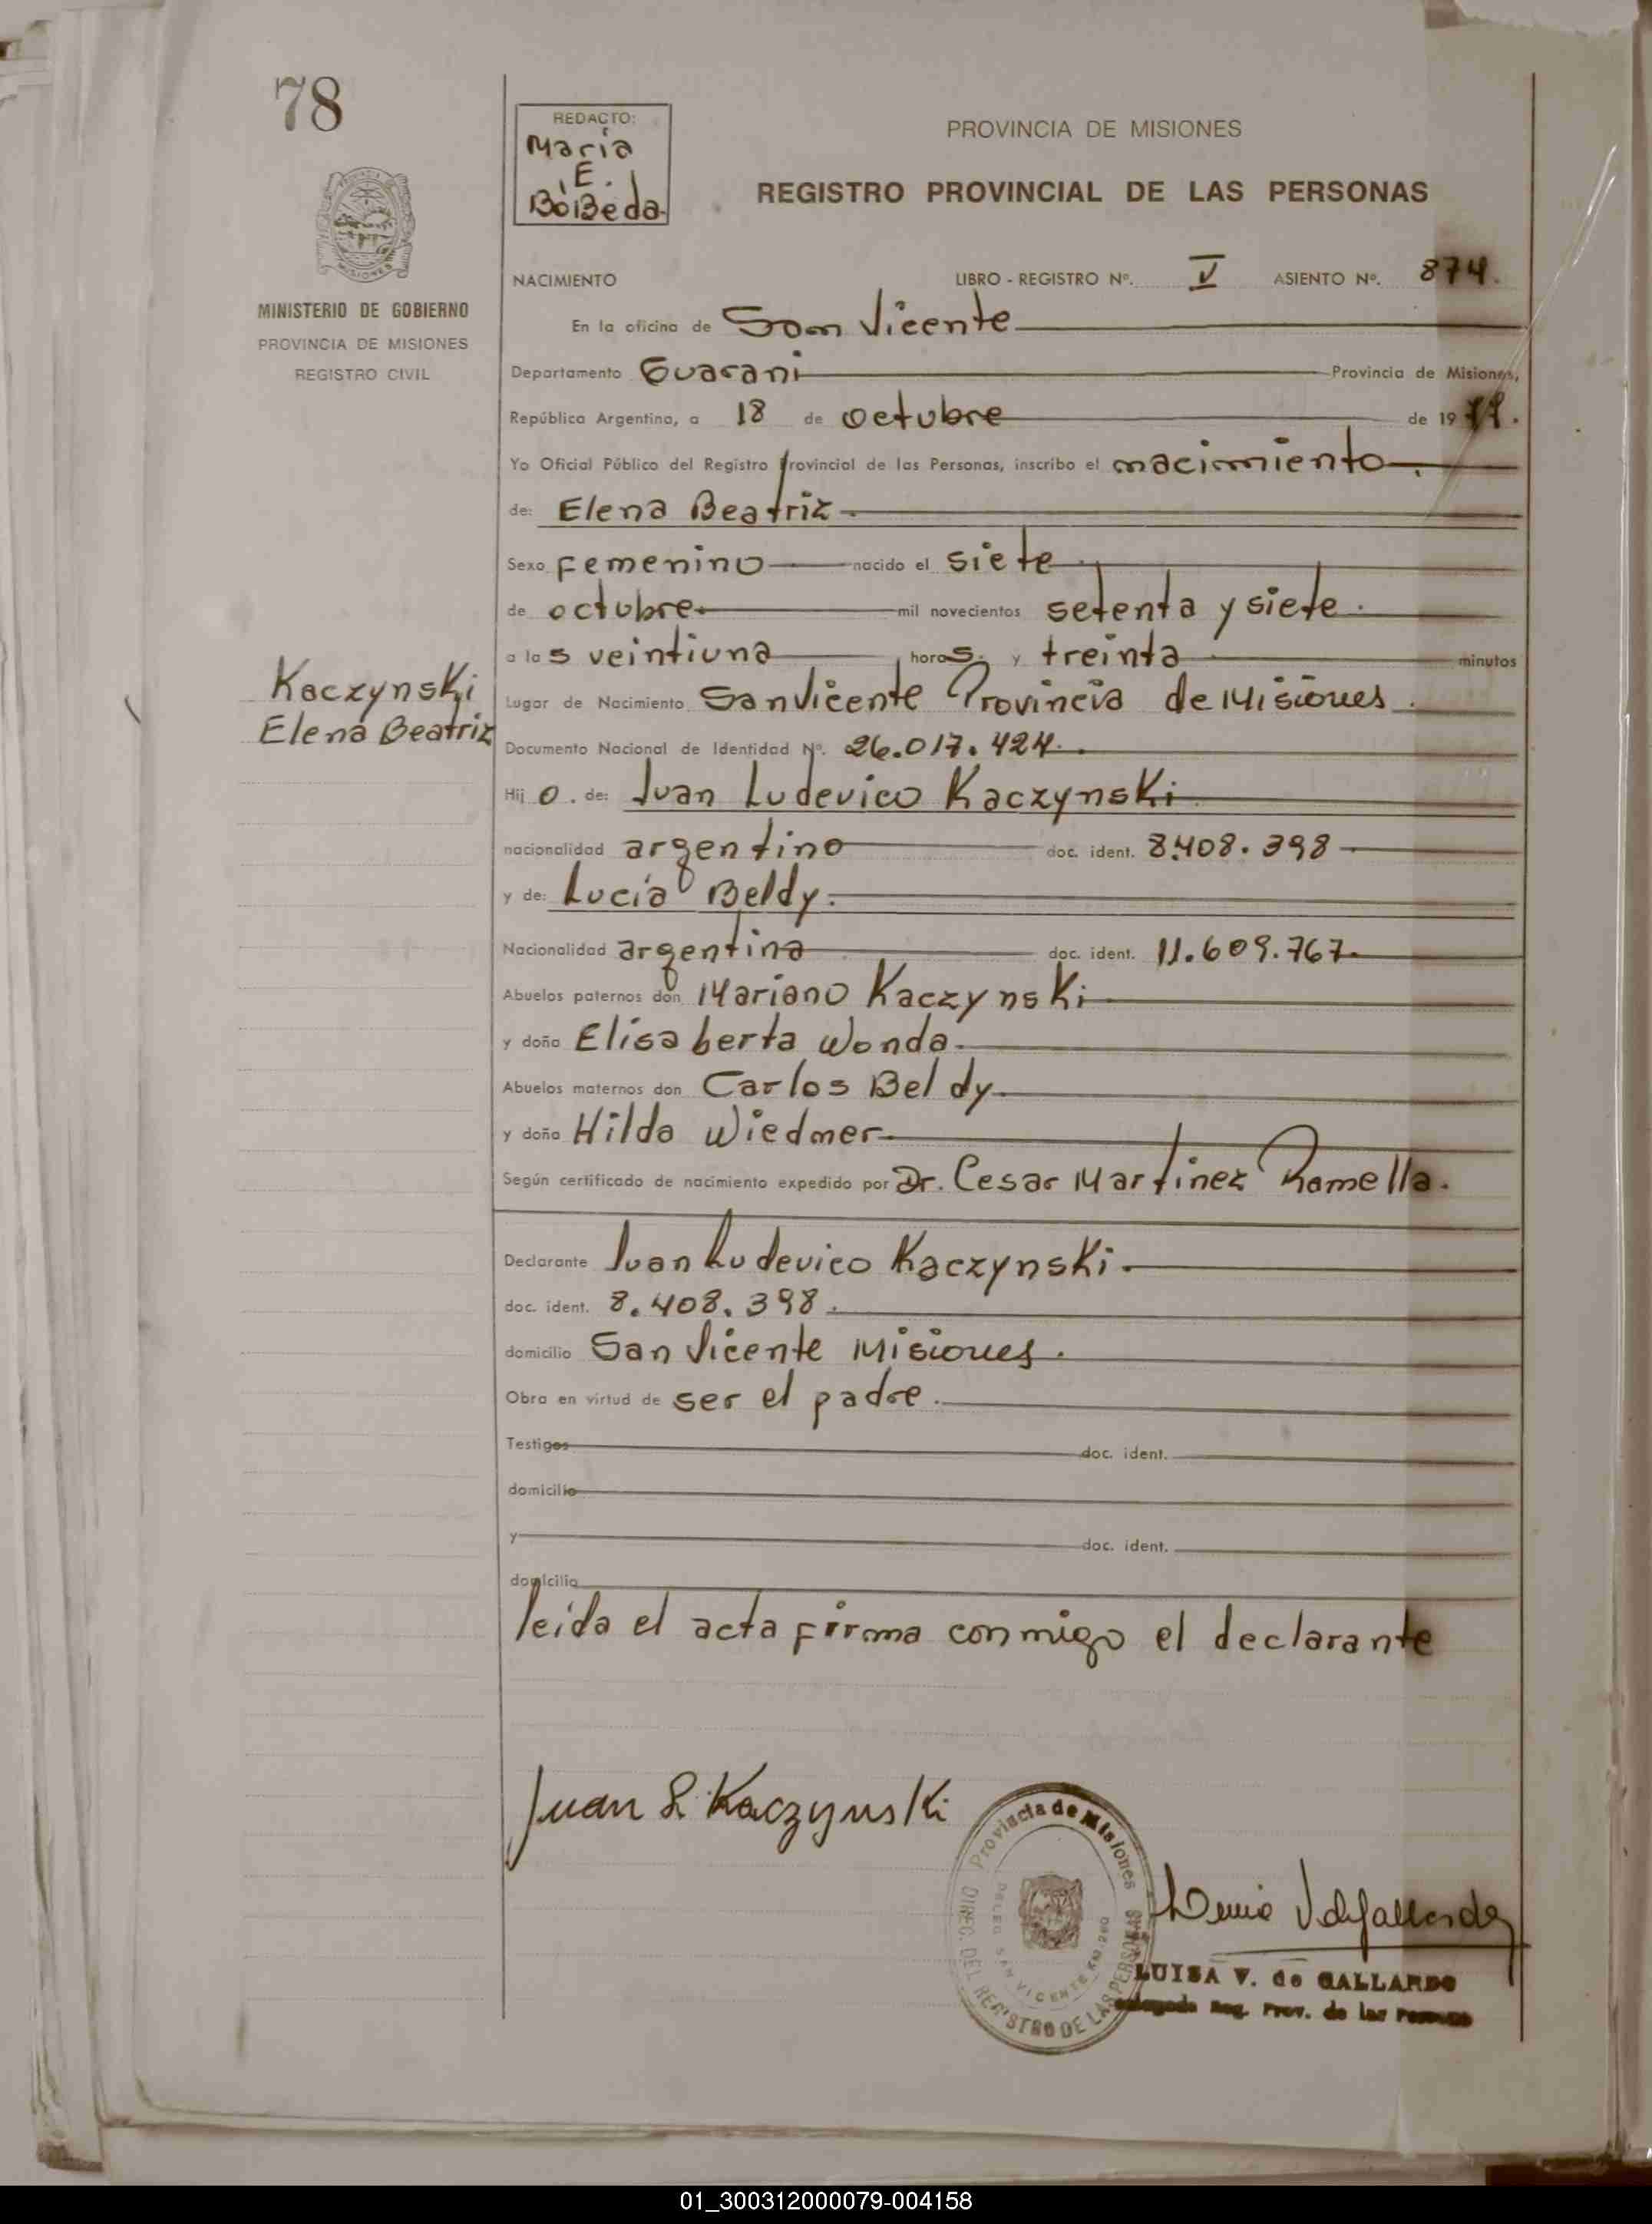 78
REDACTO:
Maria
E.
BoBeda
PROVINCIA DE MISIONES
REGISTRO PROVINCIAL DE LAS PERSONAS
MINISTERIO DE GOBIERNO
PROVINCIA DE MISIONES
REGISTRO CIVIL
NACIMIENTO LIBRO - REGISTRO Nº. V ASIENTO Nº. 874.
En la oficina de San Vicente
Departamento Guarani Provincia de Misiones,
República Argentina, a 18 de octubre de 1977.
Yo Oficial Público del Registro Provincial de las Personas, inscribo el nacimiento.
de: Elena Beatriz
Sexo femenino nacido el siete
de octubre mil novecientos setenta y siete.
a las veintiuna horas. y treinta minutos
Kaczynski
Elena Beatriz
Lugar de Nacimiento San Vicente Provincia de Misiones.
Documento Nacional de Identidad Nº. 26.017.424.
Hijo. de: Juan Ludevico Kaczynski
nacionalidad argentino doc. ident. 8.408.398
y de: Lucia Beldy.
Nacionalidad argentina doc. ident. 11.609.767.
Abuelos paternos don Mariano Kaczynski
y doña Elisaberta Wonda.
Abuelos maternos don Carlos Beldy
y doña Hilda Wiedmer
Según certificado de nacimiento expedido por Dr. Cesar Martinez Ramella.
Declarante Juan Ludevico Kaczynski.
doc. ident. 8.408.398.
domicilio San Vicente Misiones.
Obra en virtud de ser el padre.
Testigos doc. ident.
domicilio
y doc. ident.
domicilio
leida el acta firma conmigo el declarante
Juan L. Kaczynski
Provincia de Misiones
DIREC. DEL REGISTRO DE LAS PERSONAS
DELEG. SAN VICENTE
LUISA V. de GALLARDO
Delegada Reg. Prov. de las Personas
01_300312000079-004158